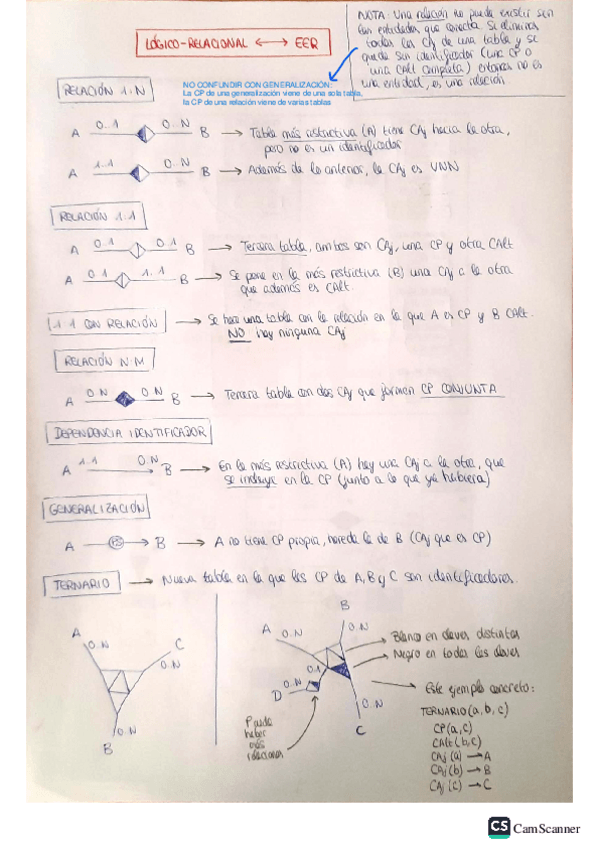 LÓGICO-RELACIONAL ⟷ EER
NOTA: Una relación no puede existir sin
las entidades que conecta. Si eliminas
todas las CAj de una tabla y se
queda sin identificador (una CP o
una CAlt completa) entonces no es
una entidad, es una relación
NO CONFUNDIR CON GENERALIZACIÓN:
La CP de una generalización viene de una sola tabla,
la CP de una relación viene de varias tablas
RELACIÓN 1:N
A 0..1 0..N B → Tabla más restrictiva (A) tiene CAj hacia la otra,
pero no es un identificador
A 1..1 0..N B → Además de lo anterior, la CAj es VNN
RELACIÓN 1:1
A 0..1 0..1 B → Tercera tabla, ambos son CAj, una CP y otra CAlt
A 0..1 1..1 B → Se pone en la más restrictiva (B) una CAj a la otra
que además es CAlt.
1:1 CON RELACIÓN → Se hace una tabla con la relación en la que A es CP y B CAlt.
NO hay ninguna CAj
RELACIÓN N:M
A 0..N 0..N B → Tercera tabla con dos CAj que formen CP CONJUNTA
DEPENDENCIA IDENTIFICADOR
A 1..1 0..N B → En la más restrictiva (A) hay una CAj a la otra, que
se incluye en la CP (junto a lo que ya hubiera)
GENERALIZACIÓN
A → B → A no tiene CP propia, hereda la de B (CAj que es CP)
TERNARIO → Nueva tabla en la que las CP de A, B y C son identificadores.
A
0..N
C
0..N
0..N
B
B
A 0..N
0..N
0..1
D 0..N
0..N
C
Puede
haber
más
relaciones
Blanco en claves distintas
Negro en todas las claves
Este ejemplo concreto:
TERNARIO (a, b, c)
CP (a, c)
CAlt (b, c)
CAj (a) → A
CAj (b) → B
CAj (c) → C
CS CamScanner